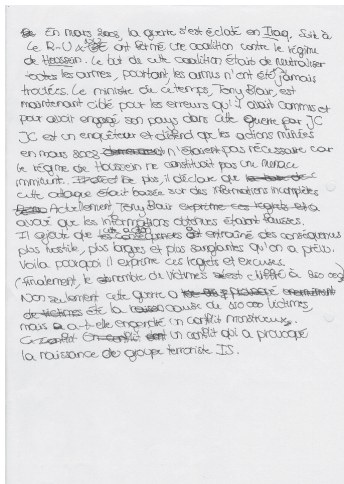 En mars 2003, la guerre s'est éclaté en Iraq. Suit à
Le R-U & ont formé une coalition contre le régime
de Houssein. Le but de cette coalition étais de neutraliser
toutes les armes, pourtant, les armes n'ont été jamais
trouvées. Le ministre du ce temps, Tony Blair, est
maintenant ciblé pour les erreurs qu'il avait commis et
pour avoir engagé son pays dans cette guerre par JC
JC est un enquêteur et défend que les actions militaires
en mars 2003 n'étaient pas nécessaire car
le régime de Houssein ne constituait pas une menace
imminent. De plus, il déclare que
cette attaque était basée sur des informations incomplètes
Actuellement Tony Blair
avoué que les informations obtenues étaient fausses.
Il ajoute que cette action a entraîné des conséquences
plus hostile, plus larges et plus sanglantes qu'on a prévu.
Voila pourquoi il exprime ces regrets et excuses.
(finalement, le nombre du victimes est chiffré à 150 000)
Non seulement cette guerre a
été la cause du 150 000 victimes,
mais a-t-elle engendré un conflit monstrueux.
un conflit qui a provoqué
la naissance de groupe terroriste IS.